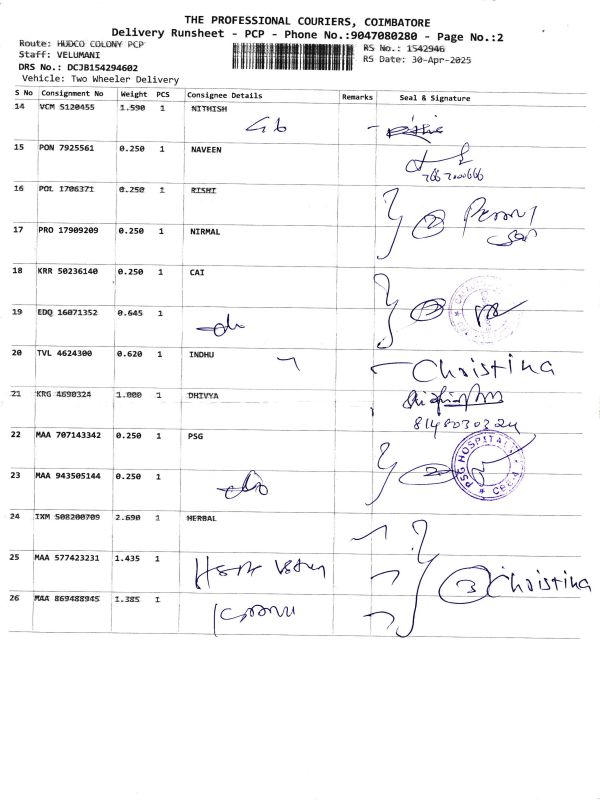 THE PROFESSIONAL COURIERS, COIMBATORE
Delivery Runsheet - PCP - Phone No.:9047080280 - Page No.:2
Route: HUDCO COLONY PCP
Staff: VELUMANI
DRS No.: DCJB154294602
Vehicle: Two Wheeler Delivery
RS No.: 1542946
RS Date: 30-Apr-2025
S No Consignment No Weight PCS Consignee Details Remarks Seal & Signature
14 VCM 5120455 1.590 1 NITHISH
15 PON 7925561 0.250 1 NAVEEN
16 POL 1706371 0.250 1 RISHI
17 PRO 17909209 0.250 1 NIRMAL
2
18 KRR 50236140 0.250 1 CAI
19 EDQ 16071352 0.645 1
20 TVL 4624300 0.620 1 INDHU
Christina
21 KRG 4690324 1.000 1 DHIVYA
8148030324
22 MAA 707143342 0.250 1 PSG
PSG HOSPITALS
23 MAA 943505144 0.250 1
2
24 IXM 508200709 2.690 1 HERBAL
25 MAA 577423231 1.435 1
3 Christina
26 MAA 869488945 1.385 1